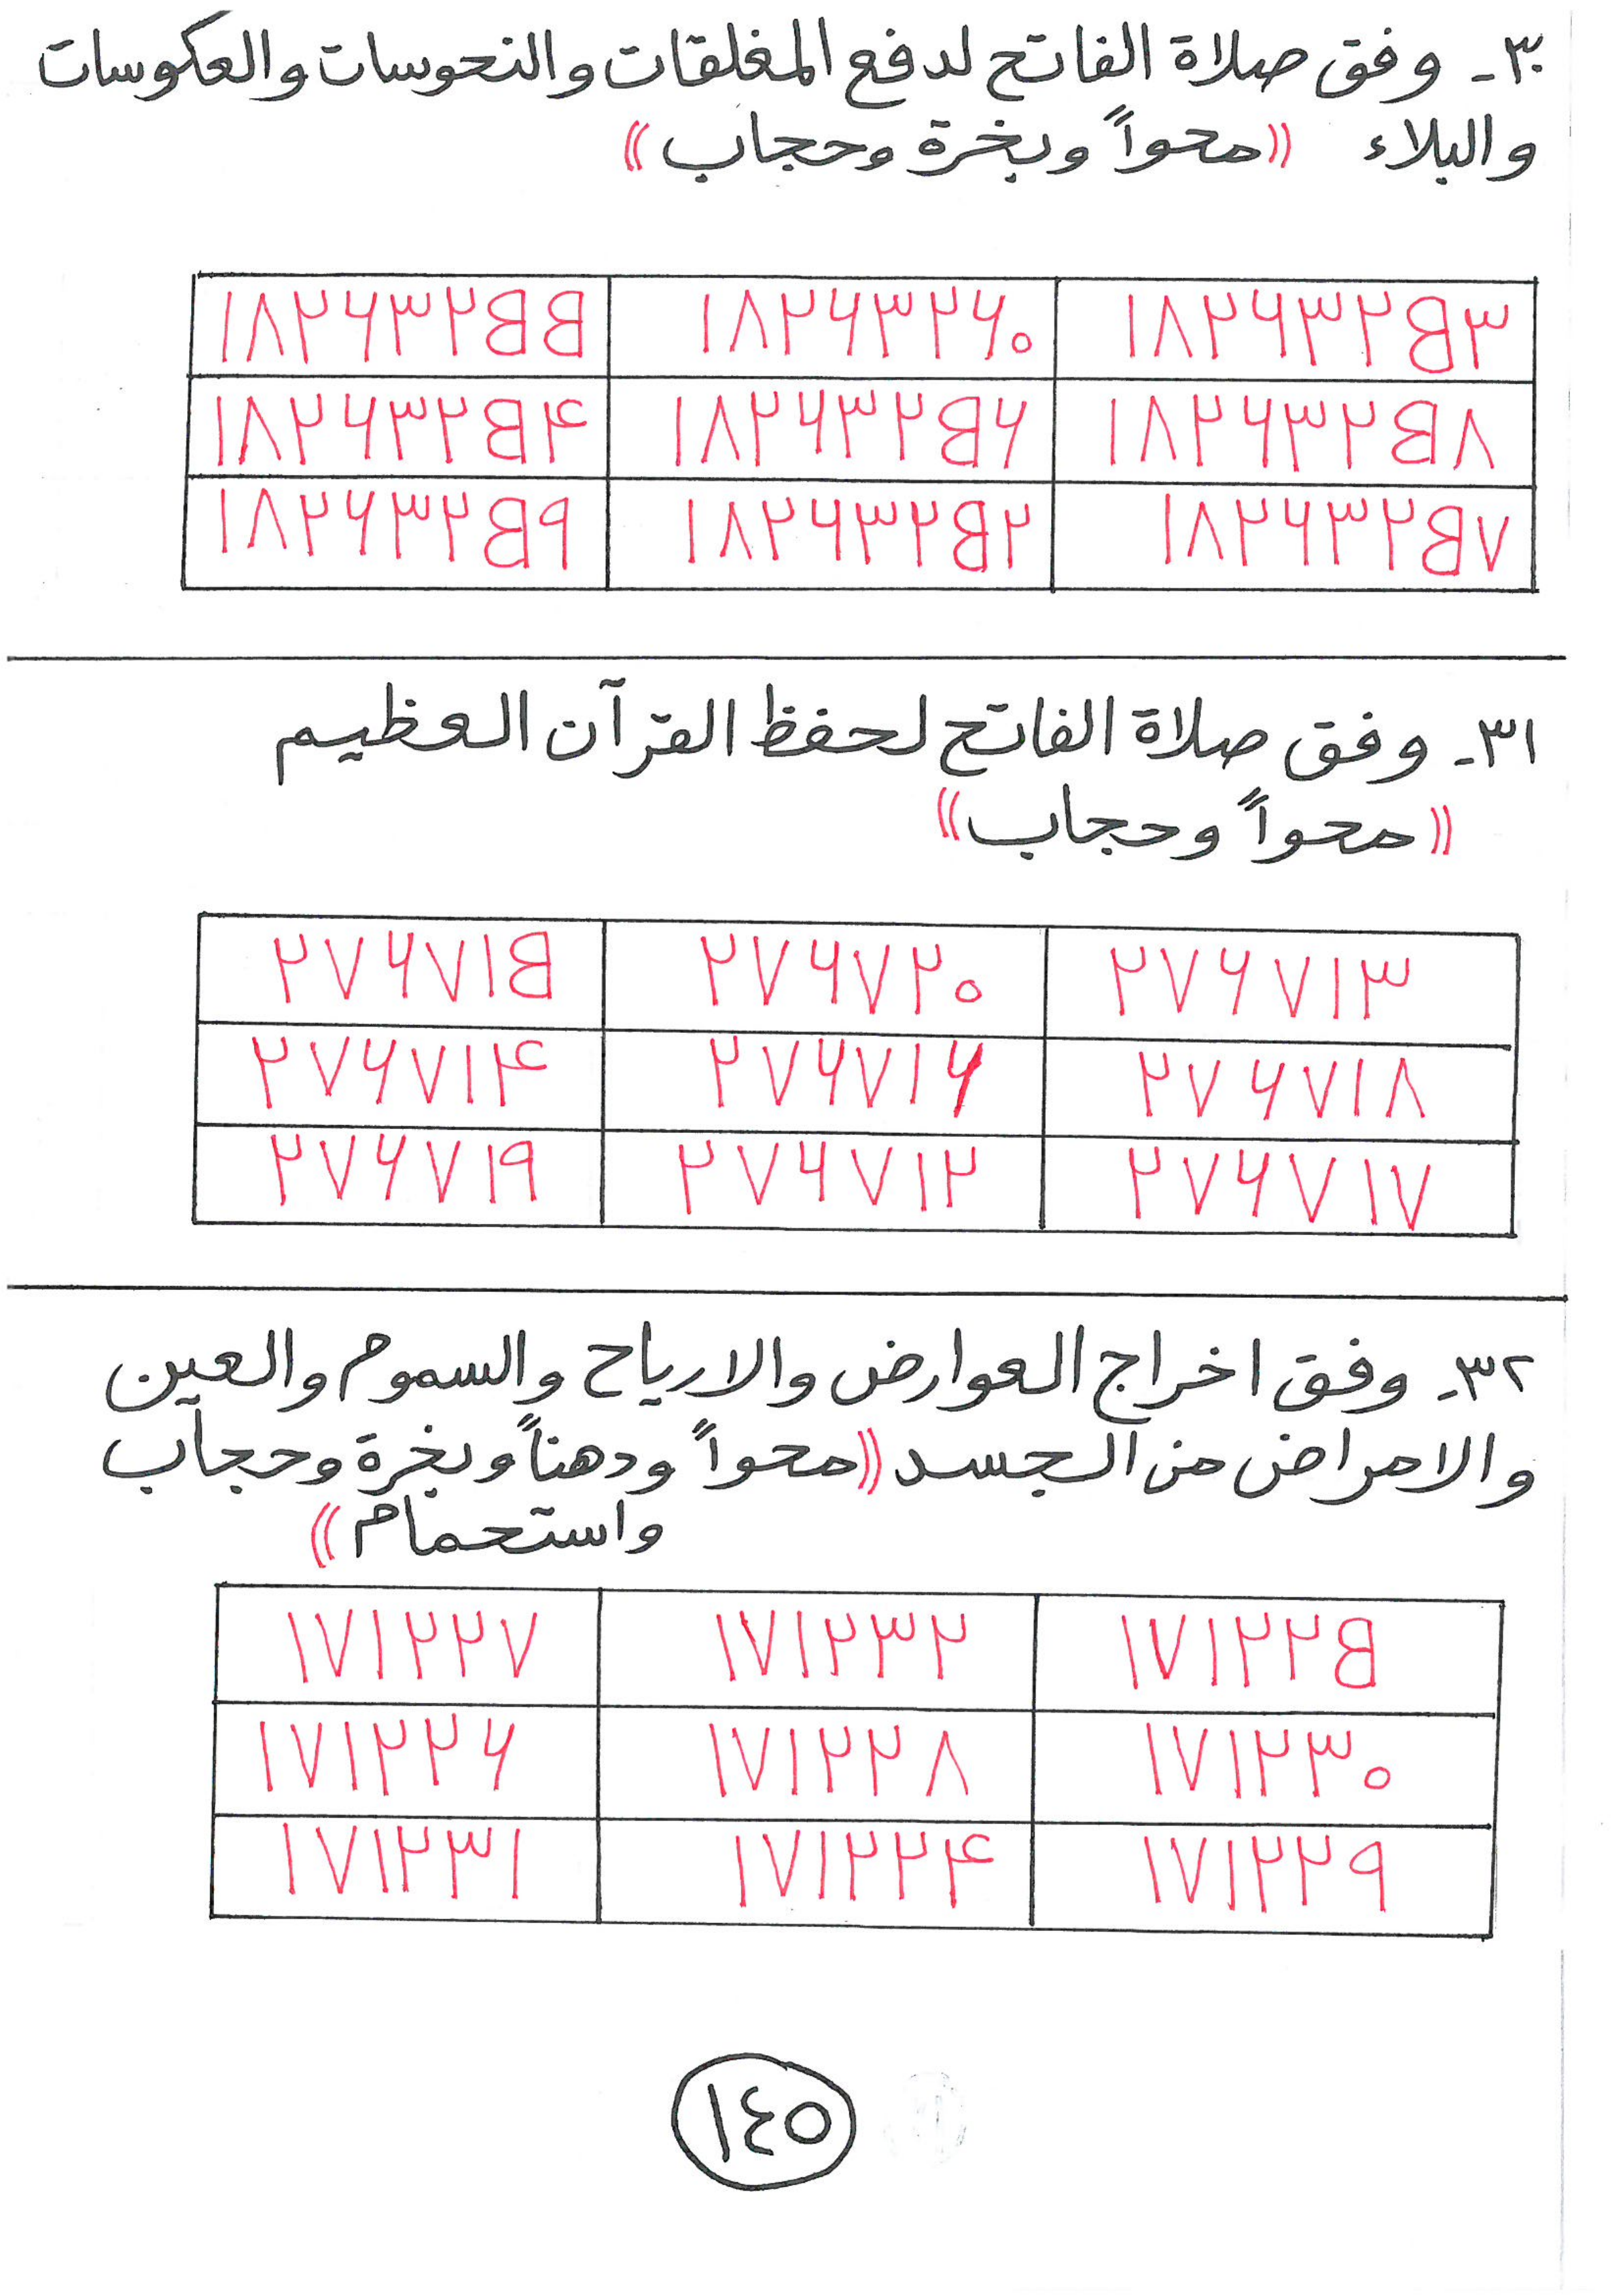 ٣٠- وفق صلاة الفاتح لدفع المغلقات والنحوسات والعكوسات
والبلاء ((محواً وبخرة وحجاب))
١٨٢٦٣٢٥٣ ١٨٢٦٣٢٦٠ ١٨٢٦٣٢٥٥
١٨٢٦٣٢٥٨ ١٨٢٦٣٢٥٦ ١٨٢٦٣٢٥٤
١٨٢٦٣٢٥٧ ١٨٢٦٣٢٥٢ ١٨٢٦٣٢٥٩
٣١- وفق صلاة الفاتح لحفظ القرآن العظيم
((محواً وحجاب))
٢٧٦٧١٣ ٢٧٦٧٢٠ ٢٧٦٧١٥
٢٧٦٧١٨ ٢٧٦٧١٦ ٢٧٦٧١٤
٢٧٦٧١٧ ٢٧٦٧١٢ ٢٧٦٧١٩
٣٢- وفق اخراج العوارض والارياح والسموم والعين
والامراض من الجسد ((محواً ودهناً وبخرة وحجاب
واستحمام))
١٧١٢٢٥ ١٧١٢٣٢ ١٧١٢٢٧
١٧١٢٣٠ ١٧١٢٢٨ ١٧١٢٢٦
١٧١٢٢٩ ١٧١٢٢٤ ١٧١٢٣١
١٤٥